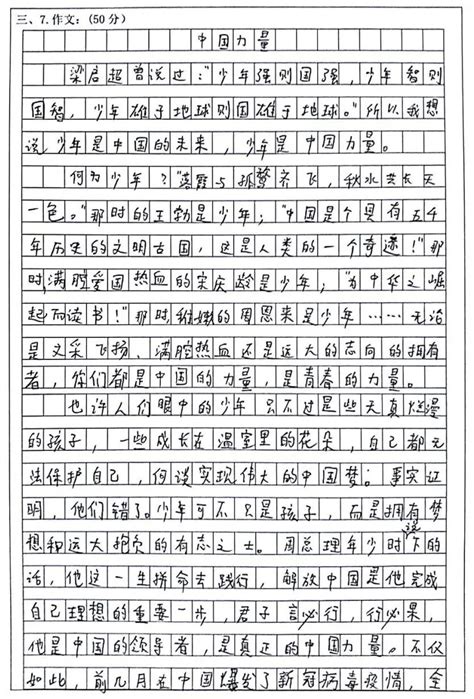 三、7.作文:(50分)
中国力量
梁启超曾说过:“少年强则国强,少年智则
国智,少年雄于地球则国雄于地球。”所以,我想
说,少年是中国的未来,少年是中国力量。
何为少年?“落霞与孤鹜齐飞,秋水共长天
一色。”那时的王勃是少年;“中国是个具有五千
年历史的文明古国,这是人类的一个奇迹!”那
时,满腔爱国热血的宋庆龄是少年;“为中华之崛
起而读书!”那时,稚嫩的周恩来是少年……无论
是文采飞扬、满腔热血还是远大的志向的拥有
者,你们都是中国的力量,是青春的力量。
也许人们眼中的少年只不过是些天真烂漫
的孩子,一些成长在温室里的花朵,自己都无
法保护自己,何谈实现伟大的中国梦。事实证
明,他们错了。少年可不只是孩子,而是拥有梦
想和远大抱负的有志之士。周总理年少时说下的
话,他这一生拼命去践行,解放中国是他完成
自己理想的重要一步,君子言必行,行必果,
他是中国的领导者,是真正的中国力量。不仅
如此,前几月在中国爆发了新冠病毒疫情,全